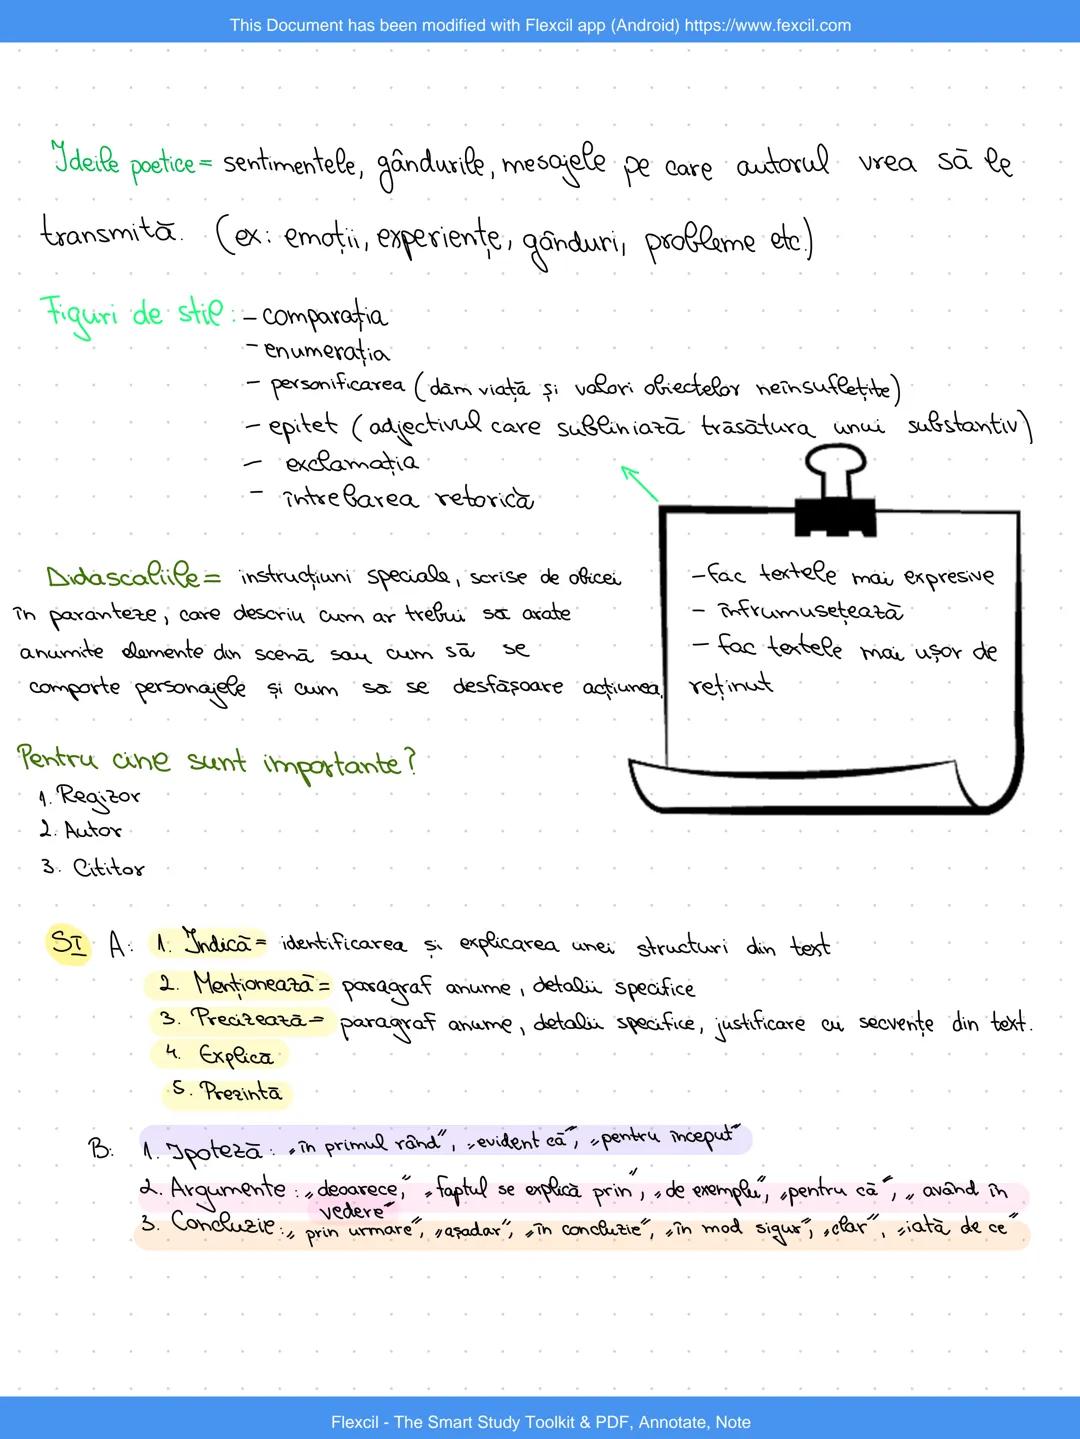 This Document has been modified with Flexcil app (Android) https://www.fexcil.com
Ideile poetice = sentimentele, gândurile, mesajele pe care autorul vrea să le
transmită. (ex: emoții, experiențe, gânduri, probleme etc.)
Figuri de stil: - comparația
- enumerația
- personificarea (dăm viață și valori obiectelor neînsuflețite)
- epitet (adjectivul care subliniază trăsătura unui substantiv)
- exclamația
- întrebarea retorică
Didascaliile = instrucțiuni speciale, scrise de obicei
în paranteze, care descriu cum ar trebui să arate
anumite elemente din scenă sau cum să se
comporte personajele și cum să se desfășoare acțiunea
- fac textele mai expresive
- înfrumusețează
- fac textele mai ușor de
reținut
Pentru cine sunt importante?
1. Regizor
2. Autor
3. Cititor
SI A: 1. Indică = identificarea și explicarea unei structuri din text
2. Menționează = paragraf anume, detalii specifice
3. Precizează = paragraf anume, detalii specifice, justificare cu secvențe din text.
4. Explică
5. Prezintă
B: 1. Ipoteză: „în primul rând”, „evident că”, „pentru început”
2. Argumente: „deoarece”, „faptul se explică prin”, „de exemplu”, „pentru că”, „având în
vedere”
3. Concluzie: „prin urmare”, „așadar”, „în concluzie”, „în mod sigur”, „clar”, „iată de ce”
Flexcil - The Smart Study Toolkit & PDF, Annotate, Note